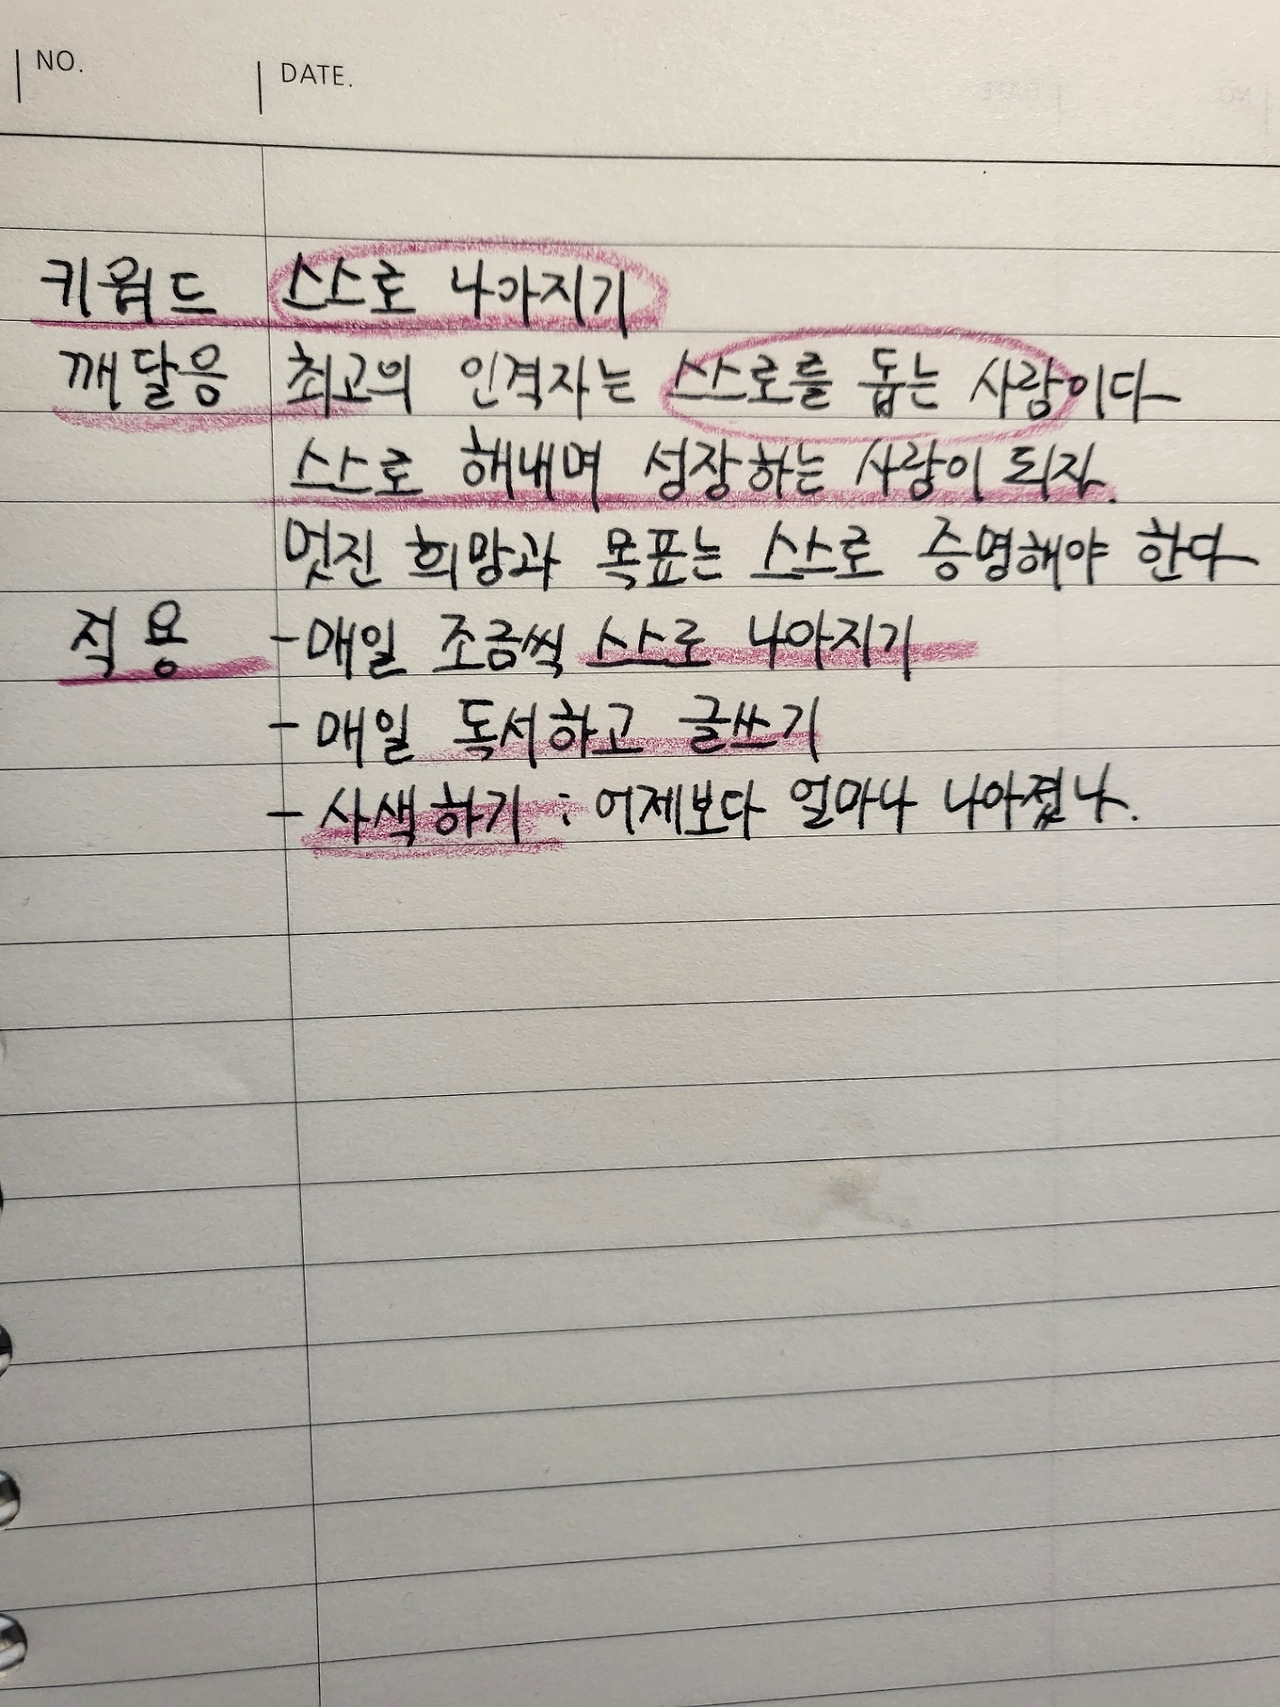 NO. DATE.
키워드 스스로 나아지기
깨달음 최고의 인격자는 스스로를 돕는 사람이다
스스로 해내며 성장하는 사람이 되자.
멋진 희망과 목표는 스스로 증명해야 한다
적용 -매일 조금씩 스스로 나아지기
- 매일 독서하고 글쓰기
- 사색하기 : 어제보다 얼마나 나아졌나.